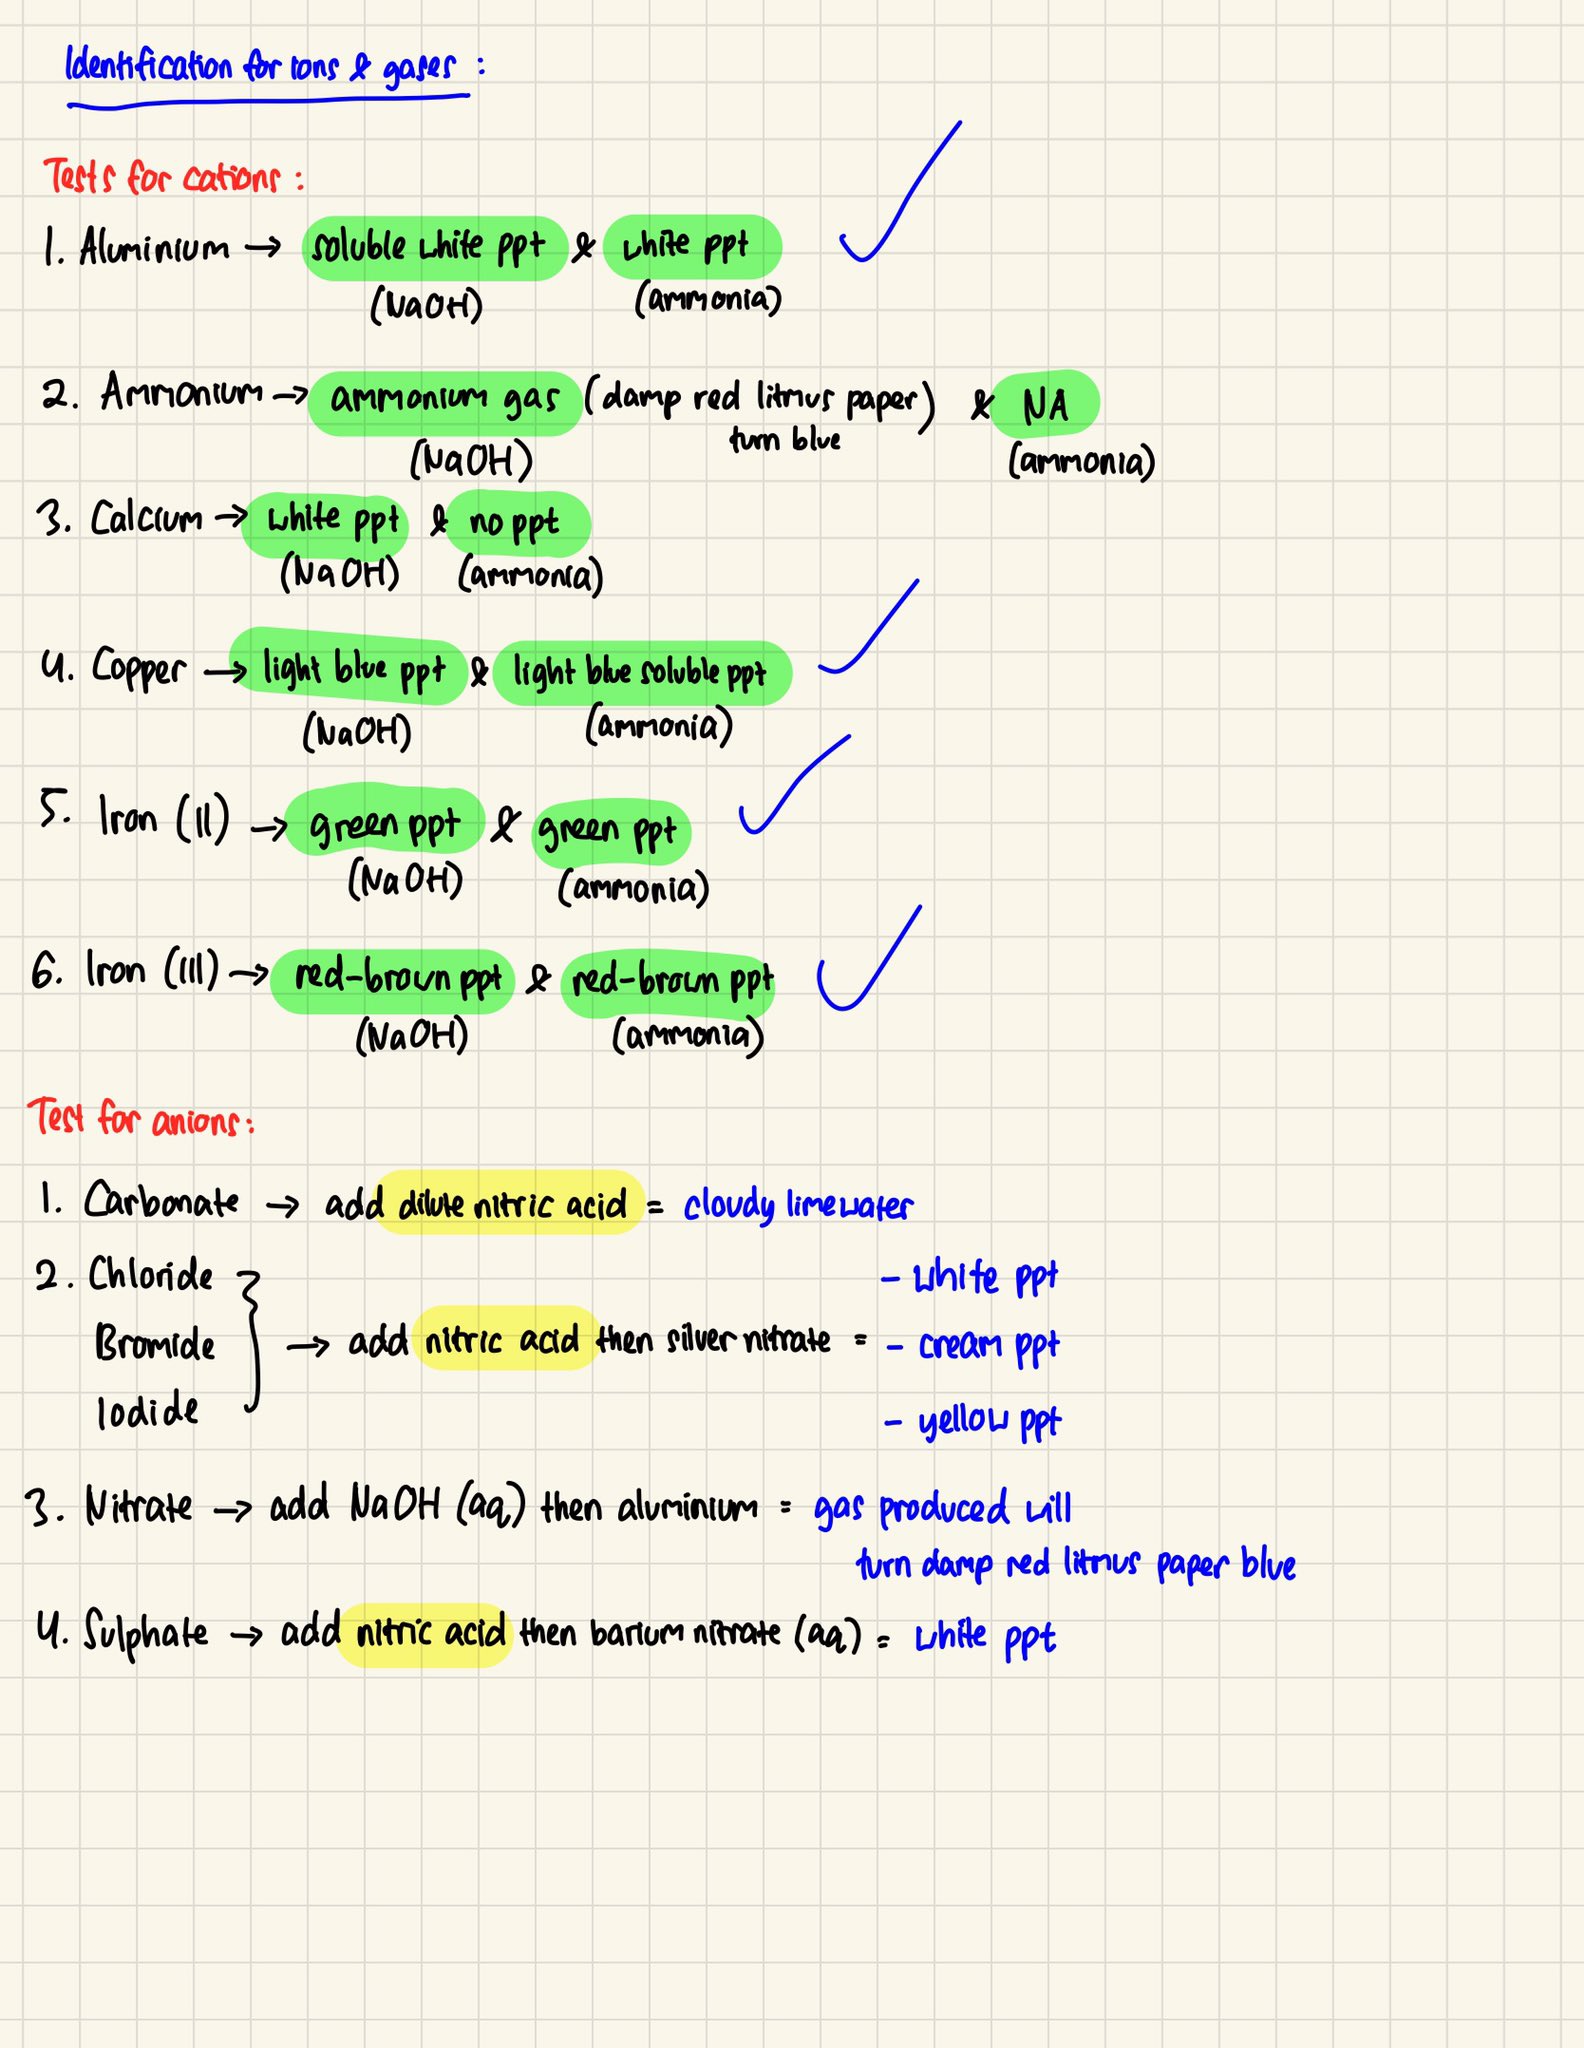 Identification for ions & gases :
Tests for cations :
1. Aluminium → soluble white ppt & white ppt
(NaOH) (ammonia)
2. Ammonium → ammonium gas (damp red litmus paper) & NA
turn blue
(NaOH) (ammonia)
3. Calcium → white ppt & no ppt
(NaOH) (ammonia)
4. Copper → light blue ppt & light blue soluble ppt
(NaOH) (ammonia)
5. Iron (II) → green ppt & green ppt
(NaOH) (ammonia)
6. Iron (III) → red-brown ppt & red-brown ppt
(NaOH) (ammonia)
Test for anions:
1. Carbonate → add dilute nitric acid = cloudy limewater
2. Chloride - white ppt
Bromide → add nitric acid then silver nitrate = - cream ppt
Iodide - yellow ppt
3. Nitrate → add NaOH (aq) then aluminium = gas produced will
turn damp red litmus paper blue
4. Sulphate → add nitric acid then barium nitrate (aq) = white ppt